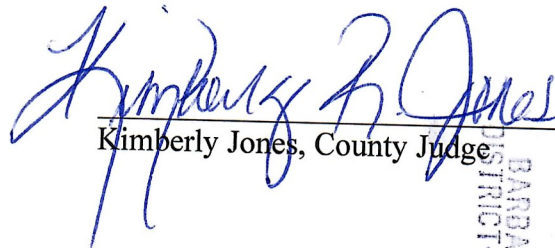 Kimberly R. Jones
Kimberly Jones, County Judge
BARBA
DISTRICT